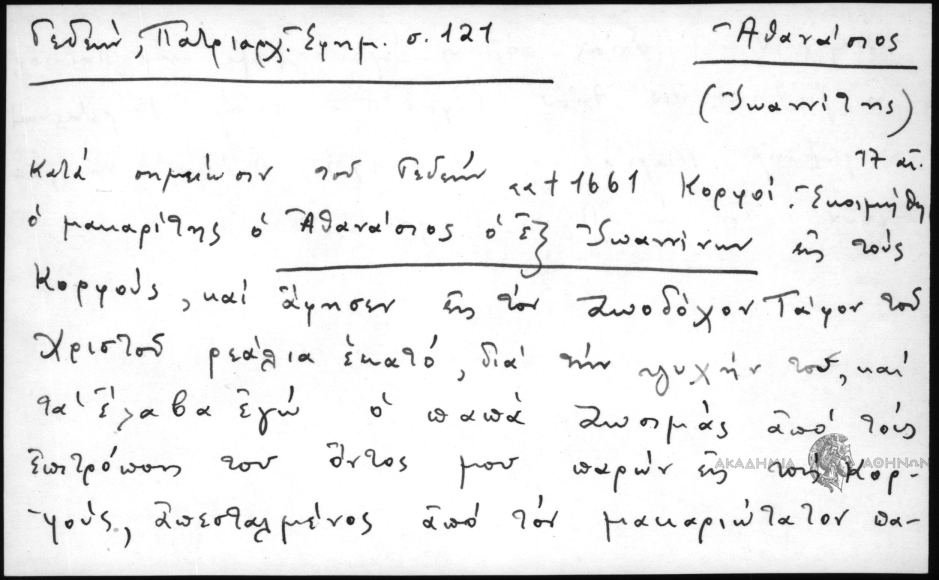 Γεδεών, Πατριαρχ. Ἐφημ. σ. 121
Ἀθανάσιος
(Ἰωαννίτης)
17 αἰ.
Κατά σημείωσιν τοῦ Γεδεών «« † 1661 Κοργοί. Ἐκοιμήθη
ὁ μακαρίτης ὁ Ἀθανάσιος ὁ ἐξ Ἰωαννίνων εἰς τούς
Κοργούς, καί ἄφησεν εἰς τόν Ζωοδόχον Τάφον τοῦ
Χριστοῦ ρεάλια ἑκατό, διά τήν ψυχήν του, καί
τά ἔλαβα ἐγώ ὁ παπά Ζωσιμάς ἀπό τούς
ἐπιτρόπους του ὄντος μου παρών εἰς τούς Κορ-
γούς, ἀπεσταλμένος ἀπό τόν μακαριώτατον πα-
ΑΚΑΔΗΜΙΑ ΑΘΗΝΩΝ